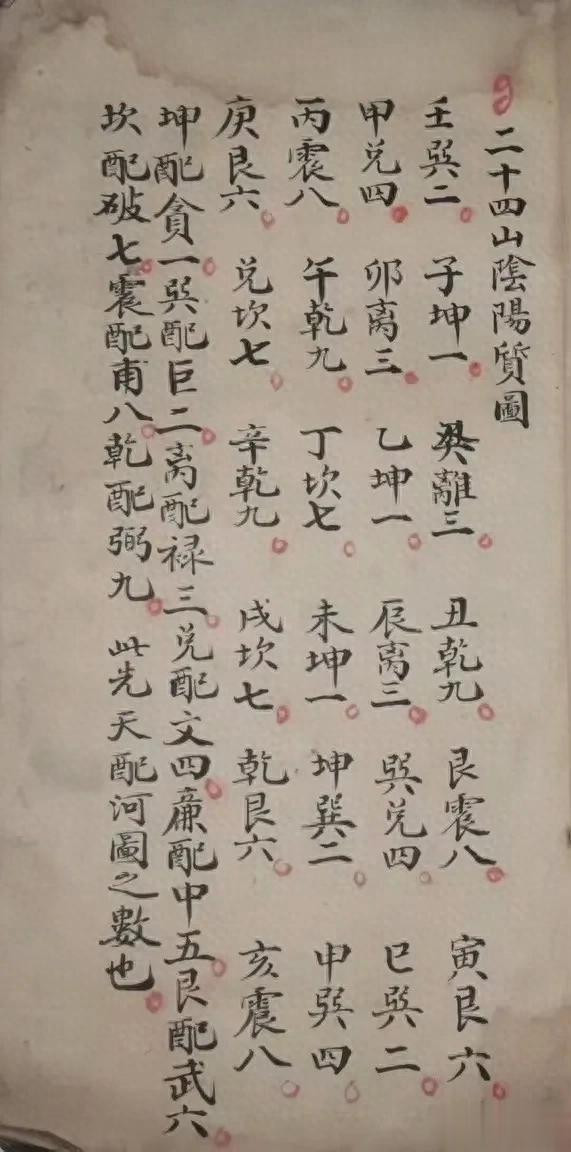 二十四山陰陽質圖
壬巽二。子坤一。癸離三。丑乾九。艮震八。寅艮六。
甲兌四。卯离三。乙坤一。辰离三。巽兌四。巳巽二。
丙震八。午乾九。丁坎七。未坤一。坤巽二。申巽四。
庚艮六。兌坎七。辛乾九。戌坎七。乾艮六。亥震八。
坤配貪一。巽配巨二。离配禄三。兌配文四。廉配中五。艮配武六。
坎配破七。震配甫八。乾配弼九。此先天配河圖之數也。